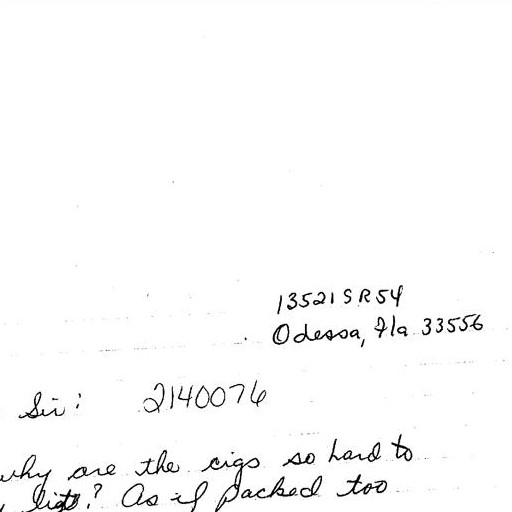 13521 SR 54
Odessa, Fla 33556
Sir: 2140076
why are the cigs so hard to
light? As if packed too